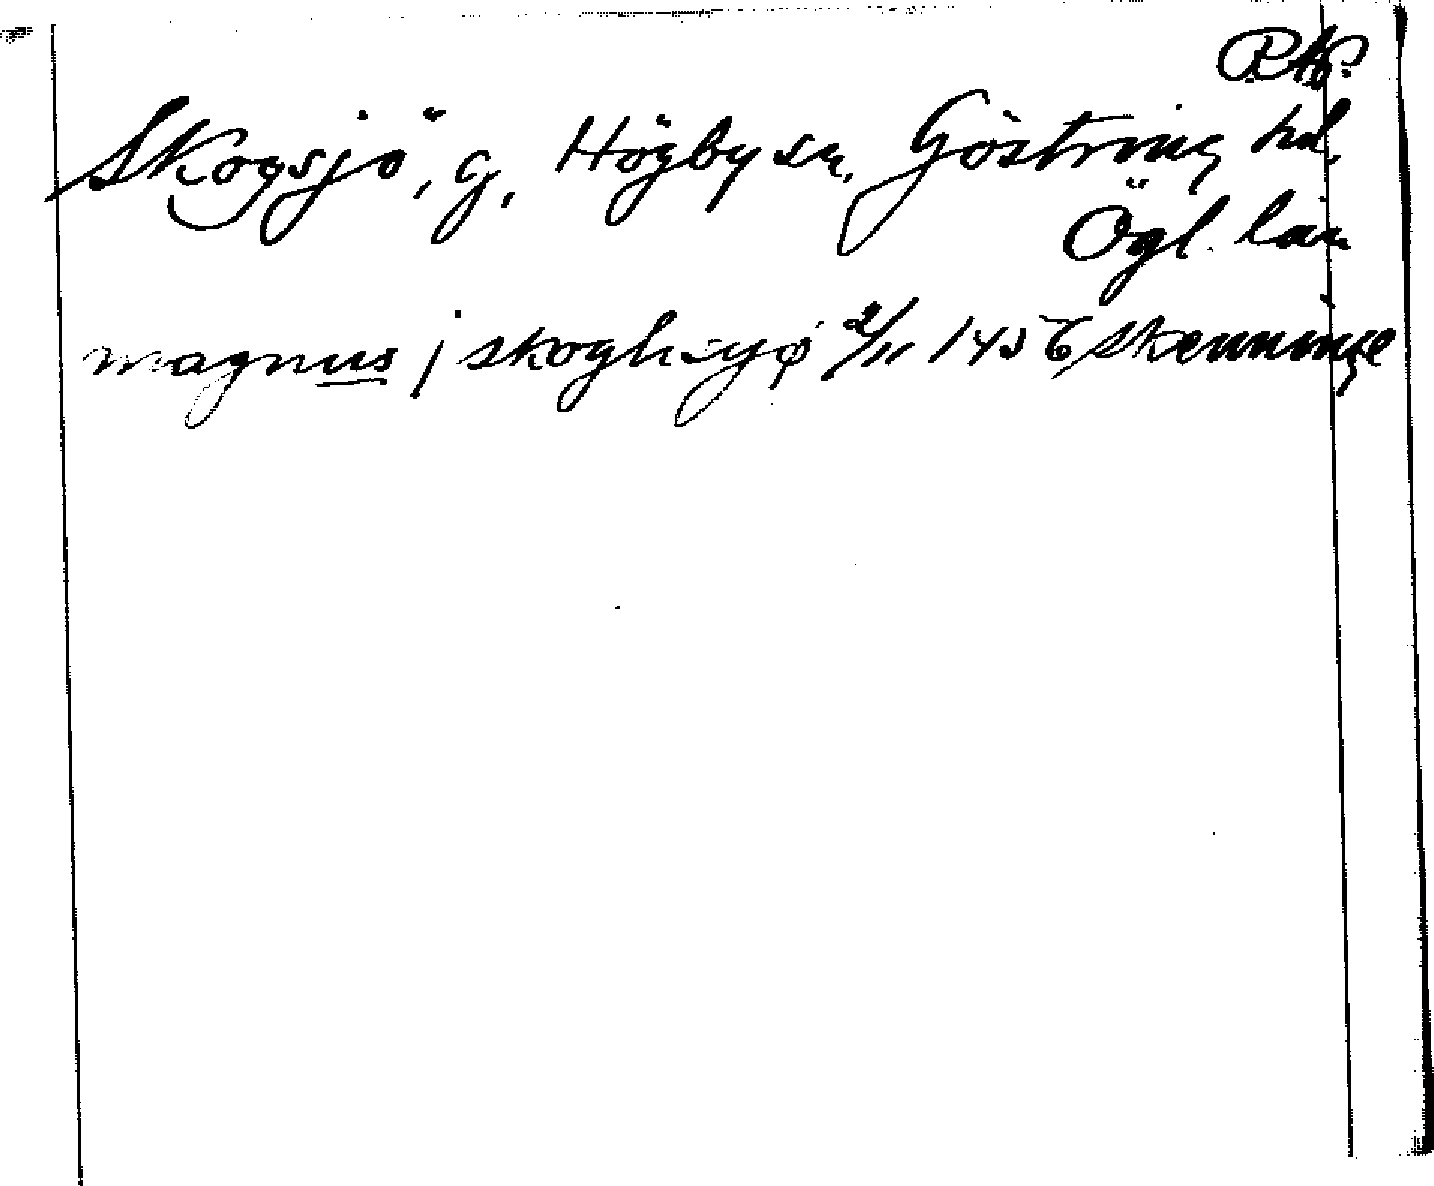 RAp.
Skogsjö, g, Högby sn, Göstring hd,
Ögl. län
magnus j skoghsyø 2/11 1456 Skenninge